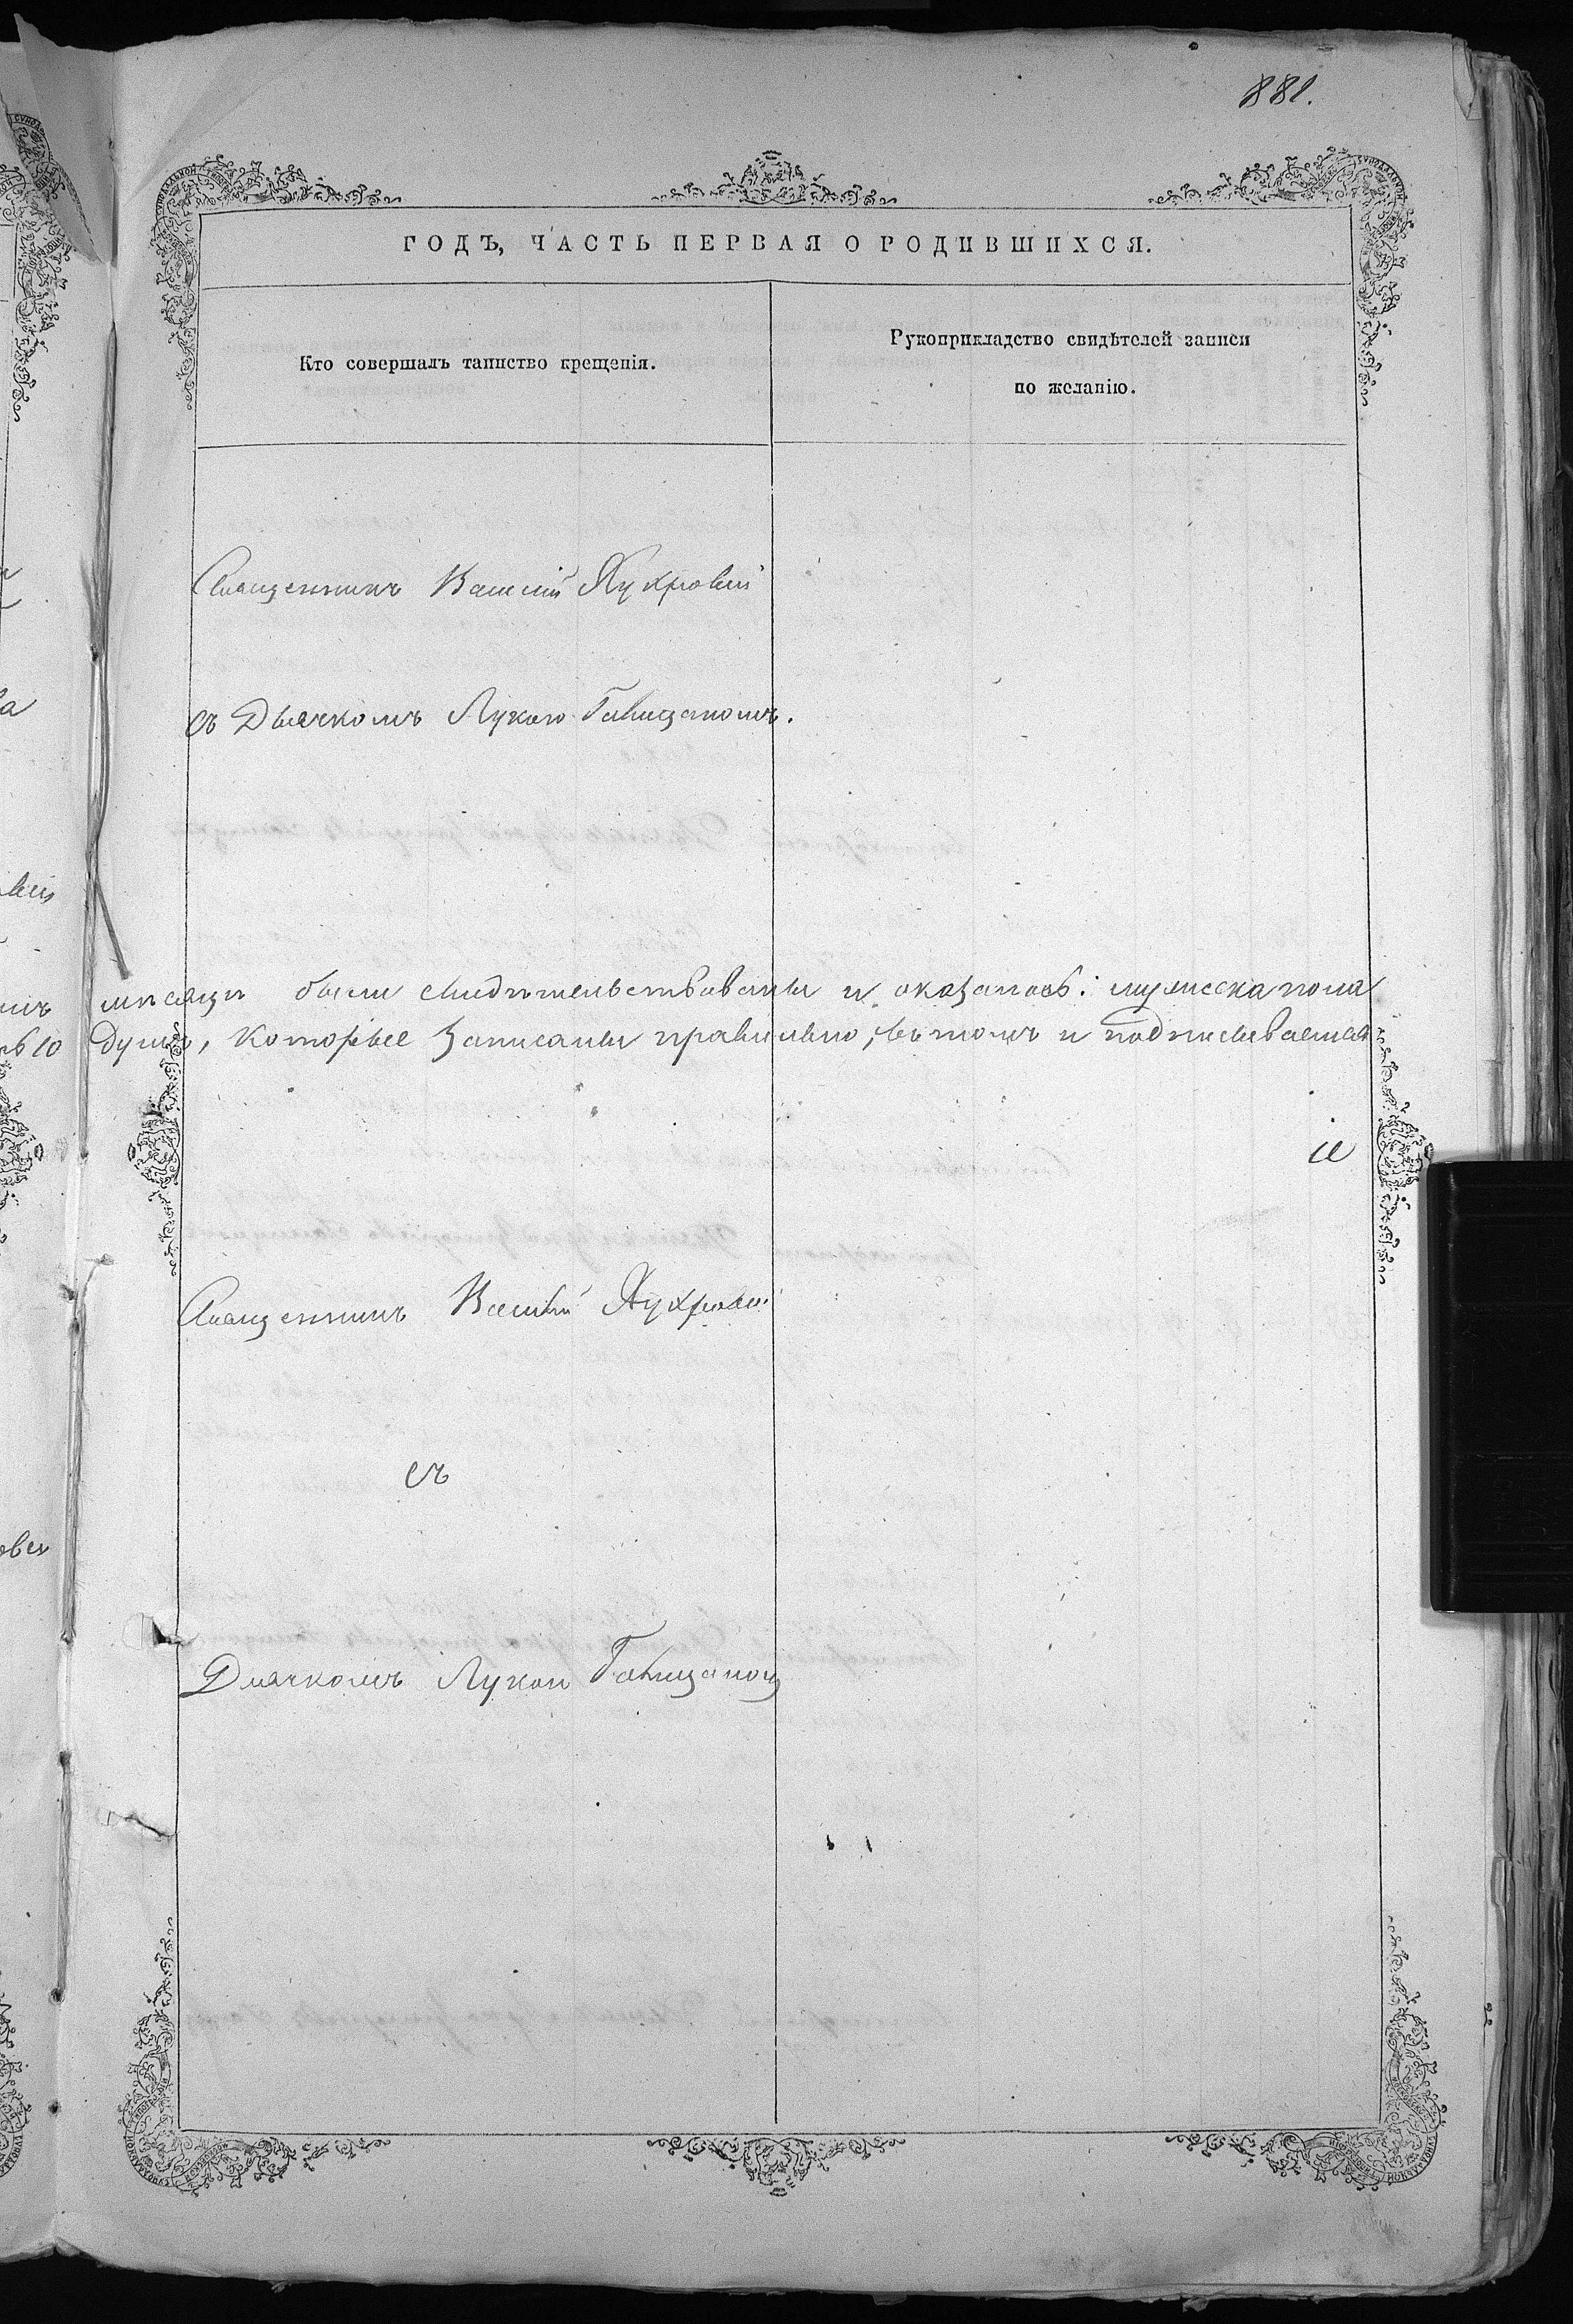 881.
ГОДЪ, ЧАСТЬ ПЕРВАЯ О РОДИВШИХСЯ.
Кто совершалъ таинство крещенія.
Рукоприкладство свидѣтелей записи
по желанію.
Священникъ Василій
съ Дьячкомъ Лукою
мѣсяцъ были свидѣтельствованы и оказалось: мужеска пола
душъ, которые записаны правильно, въ томъ и подписываемся
Священникъ Василій
съ
Дьячкомъ Лукою